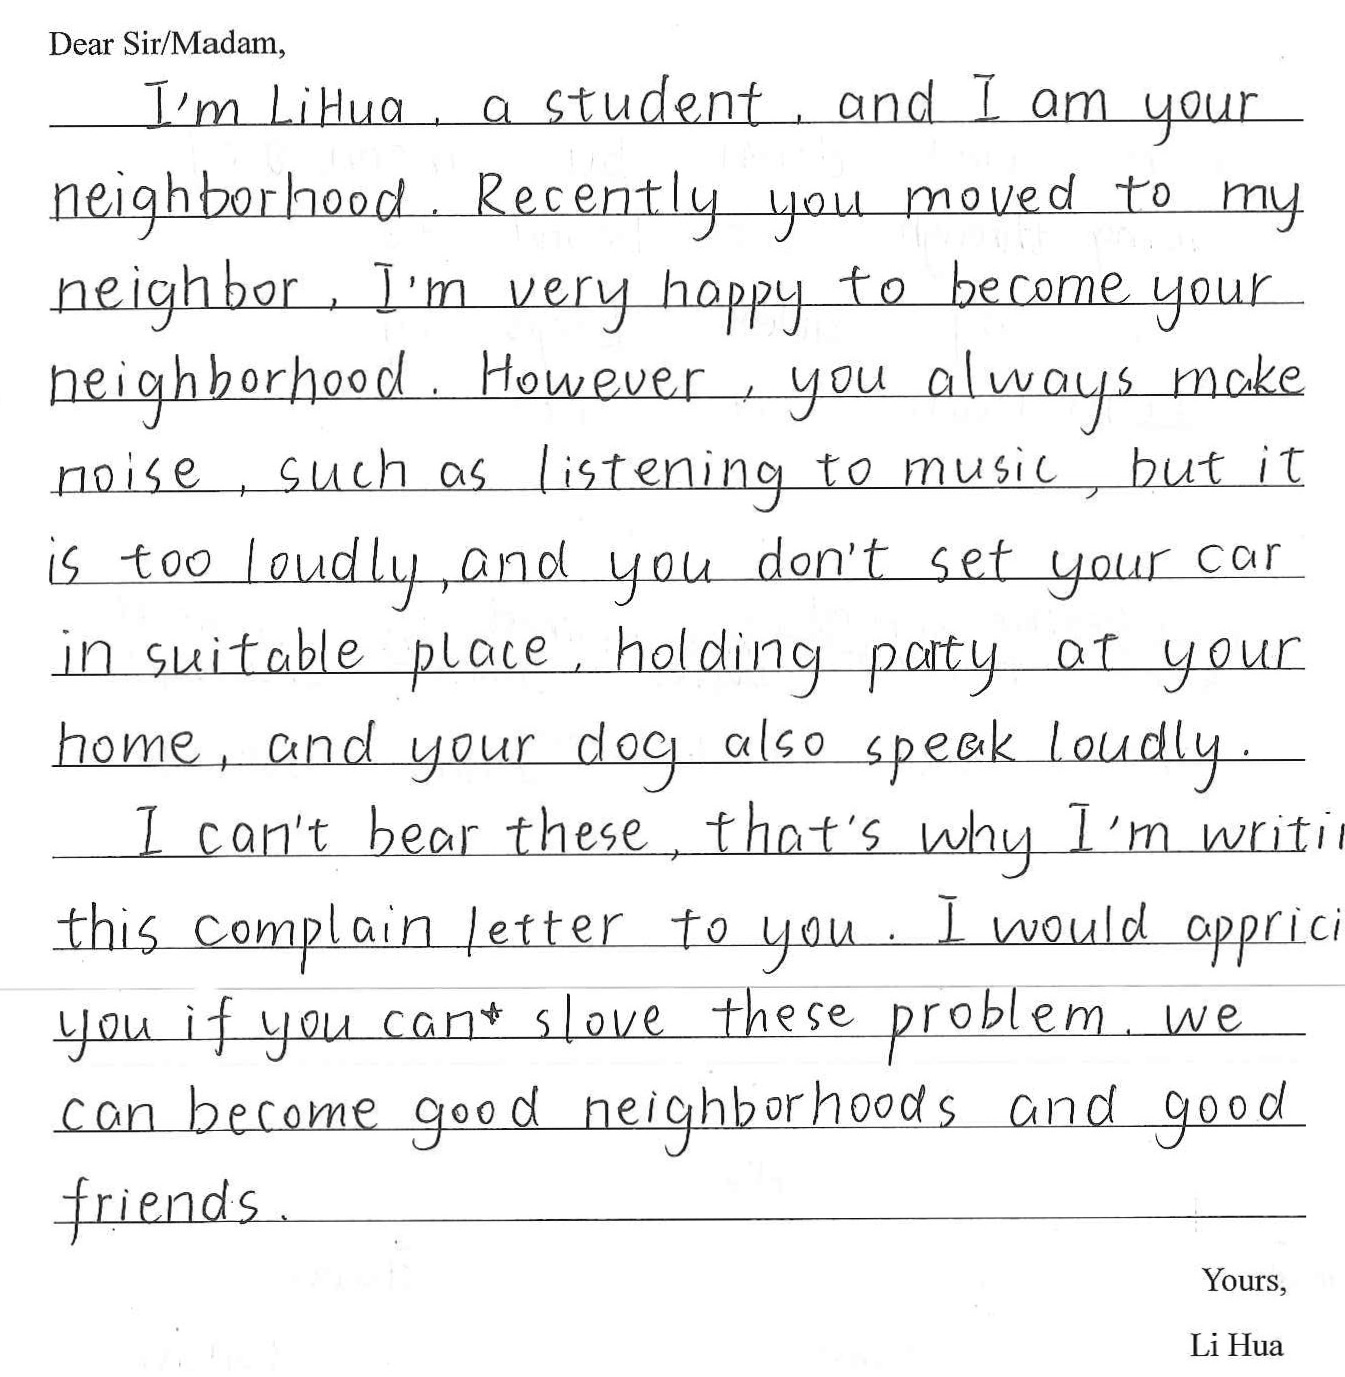 Dear Sir/Madam,
I'm LiHua, a student, and I am your
neighborhood. Recently you moved to my
neighbor, I'm very happy to become your
neighborhood. However, you always make
noise, such as listening to music, but it
is too loudly, and you don't set your car
in suitable place, holding party at your
home, and your dog also speak loudly.
I can't bear these, that's why I'm writin
this complain letter to you. I would apprici
you if you can slove these problem. we
can become good neighborhoods and good
friends.
Yours,
Li Hua